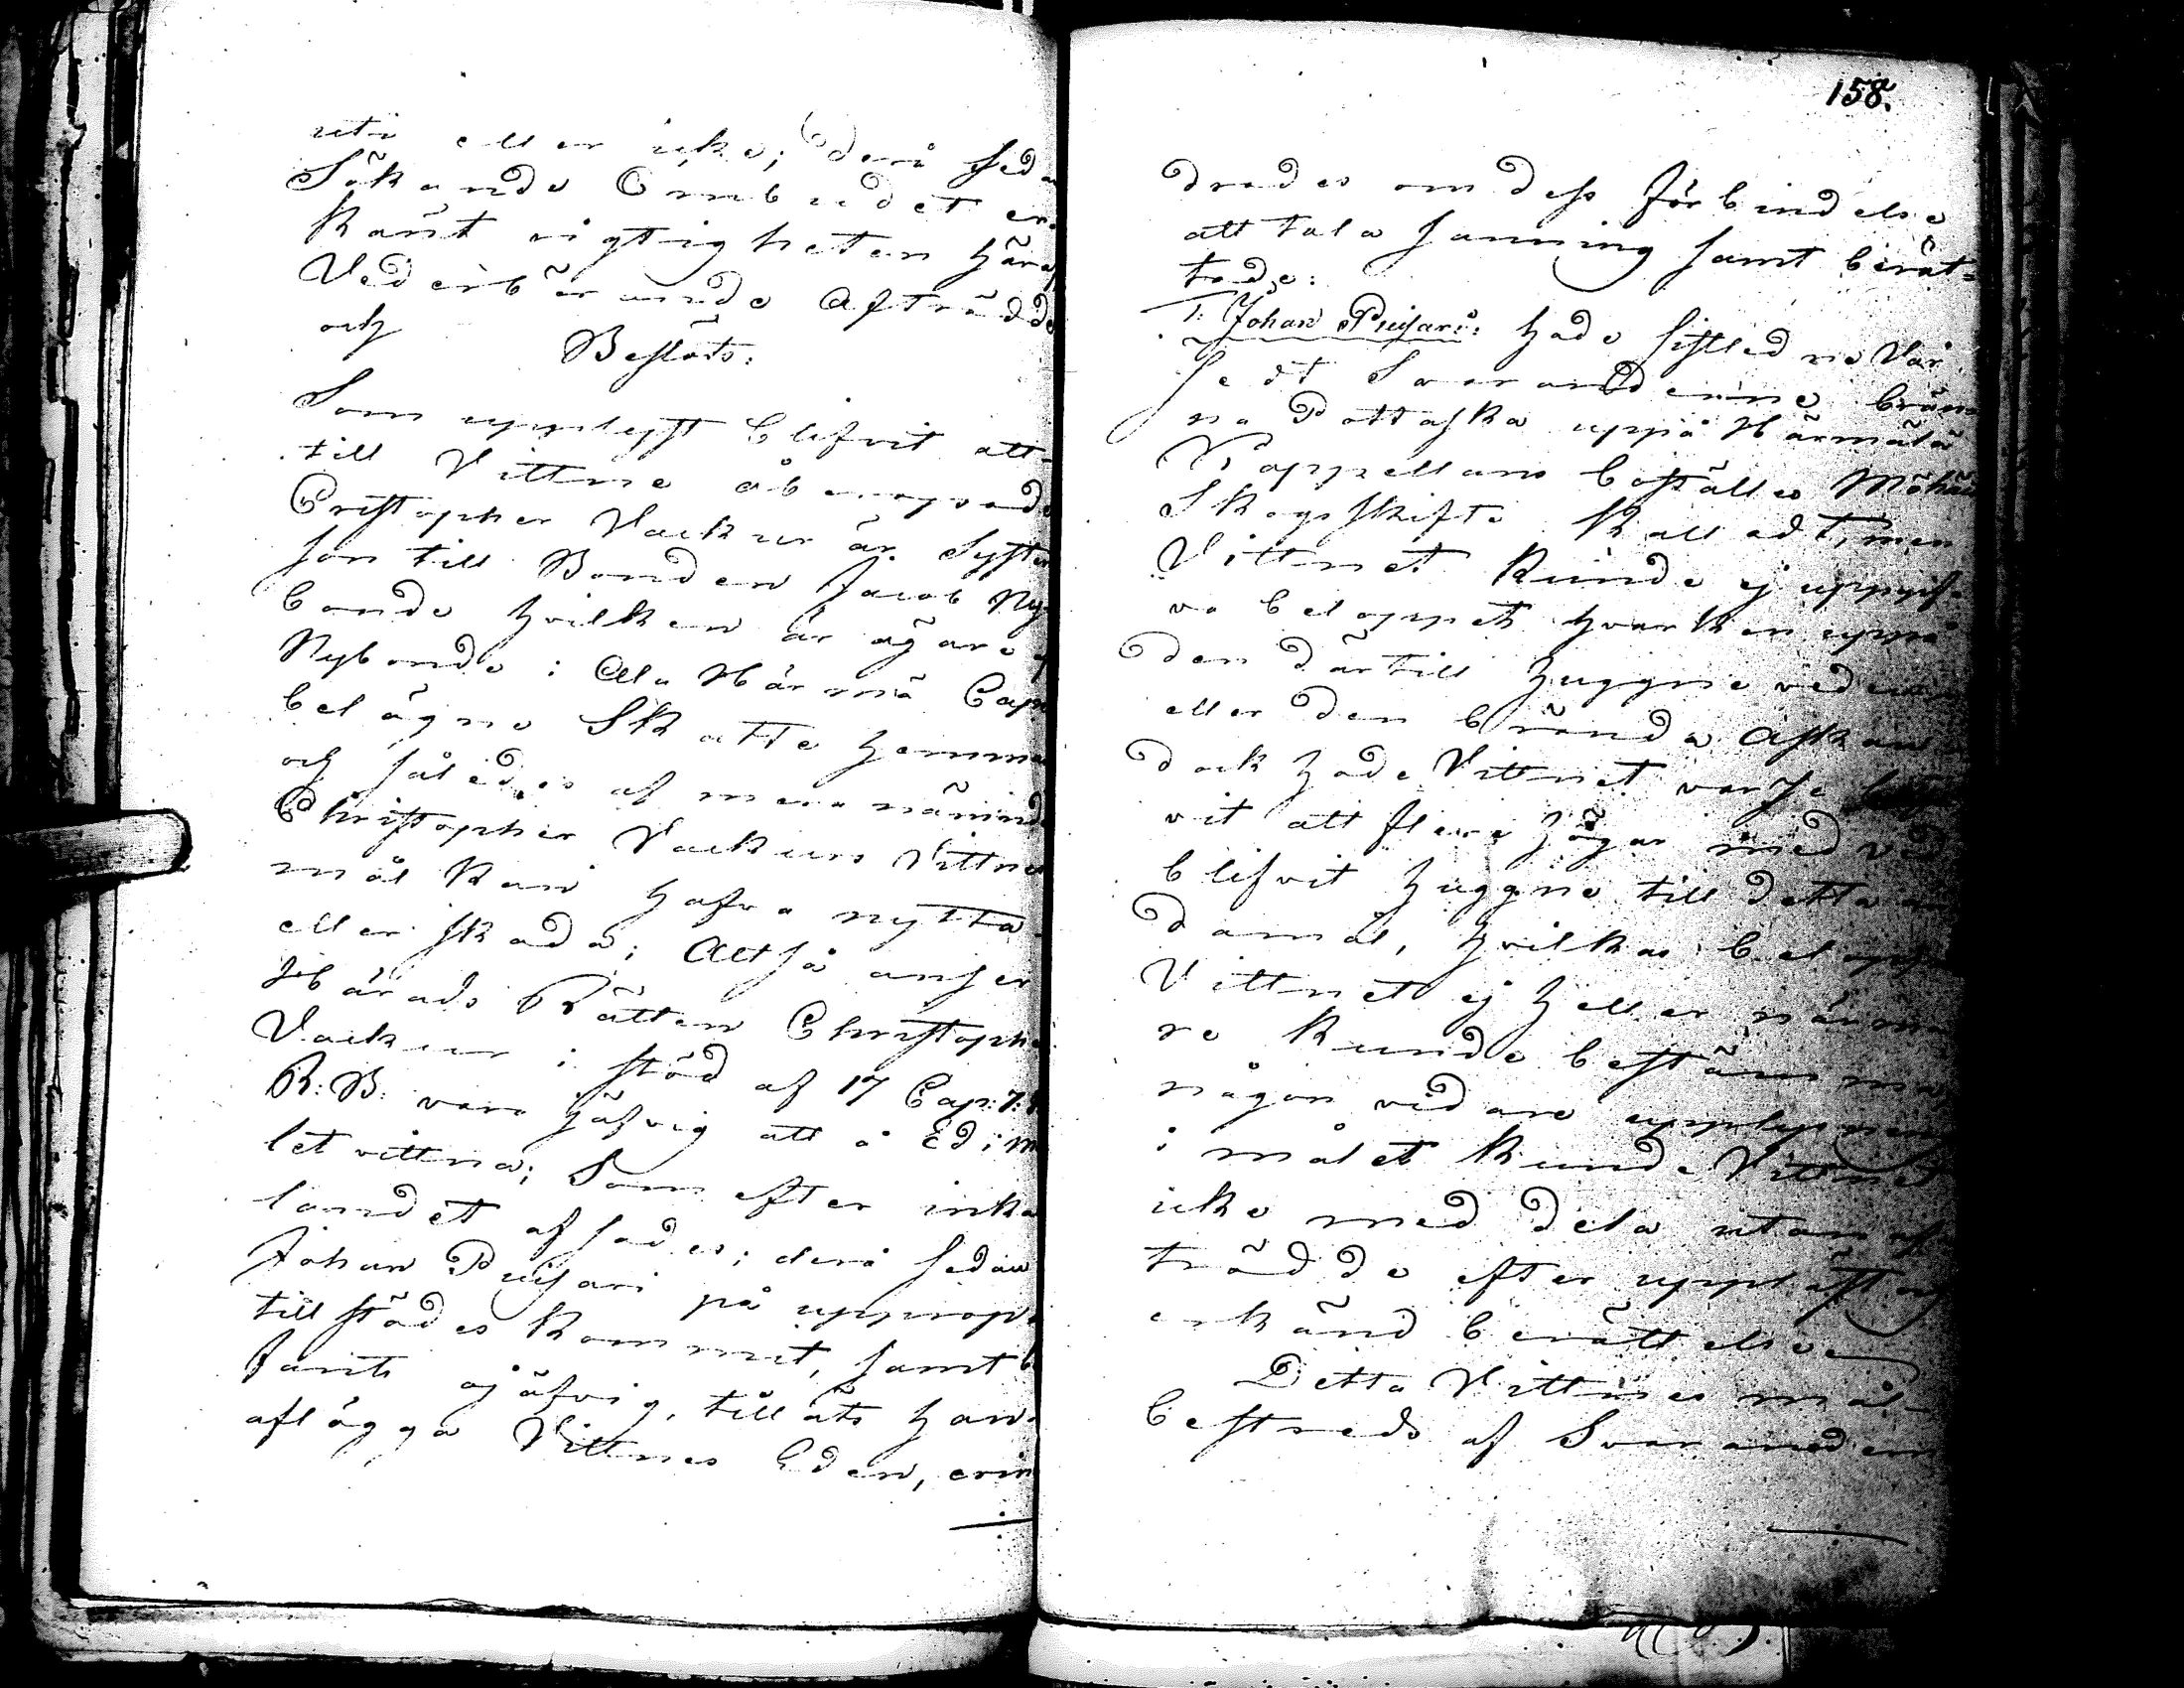 uti eller icke; derå seda
Sökande Ombudet er¬
känt rigtigheten häraf
Vederbörande Afträdde
och Beslöts:
Som upplyst blifvit att
till Vittne åberopade
Cristopher Vackur är Syster
son till Bonden Jacob Ny¬
bonde hvilken är ägare af
Nybonde i Ala Härmä Cap
belägne Skatte hemma
och således af mera nämnde
Christopher Vackurs Vittnes
mål kan hafva nytta
eller skada; Altså anser
Härads Rätten Christoph
Vackur i stöd af 17 Cap: 7:
R: B: vara jäfvig att å Ed i må
let vittna; Som efter inka
landet afsades; derå sedan
Johan Puisari på upprop
tillstädes kommit, samt be
fants ojäfvig, tilläts han
aflägga Vittnes Eden, erin
158.
drades om dess förbindelse
att tala sanning samt berät¬
tade:
1: Johan Puisari: hade sistledne Vår
sedt Svarandenne brän¬
na Pottaska uppå Härmälä
Kappellans boställes Möhäi
Skogsskifte kalladt, men
Vittnet kunde ej uppgif¬
va beloppet hvarken uppå
den därtill huggne veden
eller den brända Askan
dock hade Vittnet varse
vit att flere högar med ved
blifvit huggne till detta än
damål, hvilkas belopp
Vittnet ej heller närma
re kunde bestämma
någon vidare upplysning
i målet kunde Vittnet
icke meddela utan af
trädde efter uppläst och
erkänd berättelse
Detta Vittnes mål
bestreds af Svaranden